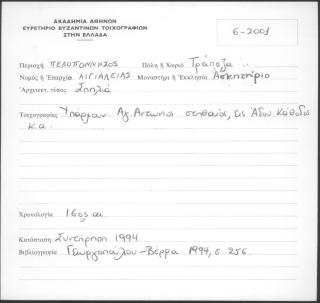 ΑΚΑΔΗΜΙΑ ΑΘΗΝΩΝ
ΕΥΡΕΤΗΡΙΟ ΒΥΖΑΝΤΙΝΩΝ ΤΟΙΧΟΓΡΑΦΙΩΝ
ΣΤΗΝ ΕΛΛΑΔΑ
6-2001
Περιοχή ΠΕΛΟΠΟΝΝΗΣΟΣ Πόλη ή Χωριό Τράπεζα
Νομός ή Ἐπαρχία ΑΙΓΙΑΛΕΙΑΣ Μοναστήρι ή Ἐκκλησία Ασκηταριό
Ἀρχιτεκτ. τύπος Σπηλιά
Τοιχογραφίες Υπάρχουν Αγ. Αντώνιος στηθαίος, Εις Άδου Κάθοδος
κ.α.
Χρονολογία 16ος αι.
Κατάσταση Συντήρηση 1994
Βιβλιογραφία Γεωργοπούλου-Βέρρα 1994, σ 256.